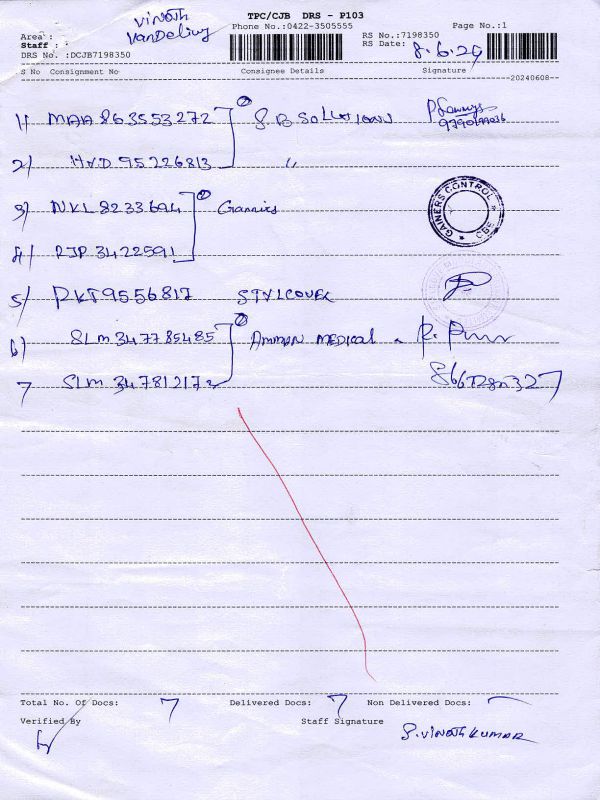 TPC/CJB DRS - P103
Phone No.:0422-3505555
Page No.:1
Area :
Vinoth
Van Delivery
RS No.:7198350
Staff :
RS Date: 8.6.24
DRS No. :DCJB7198350
S No Consignment No Consignee Details Signature
20240608
1) MAA 863553272 S B SOLUTIONS
2) HYD 95226813 "
3) NKL 8233694 Gainers
GAINERS CONTROL CBE
4) PJP 3422591
5) PKT9556817
6) SLM 347785485 AMMAN MEDICAL
7 SLM 34781217
Total No. Of Docs: 7 Delivered Docs: 7 Non Delivered Docs: -
Verified By Staff Signature
S. VINOTH KUMAR